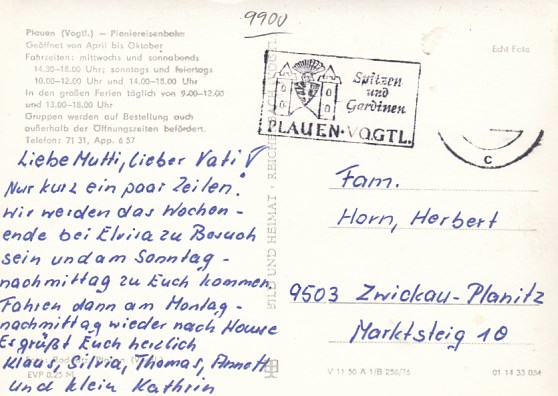 9900
Plauen (Vogtl.) — Pioniereisenbahn
Geöffnet von April bis Oktober
Fahrzeiten: mittwochs und sonnabends
14.30–18.00 Uhr; sonntags und feiertags
10.00–12.00 und 14.00–18.00 Uhr
In den großen Ferien täglich von 9.00–12.00
und 13.00–18.00 Uhr
Gruppen werden auf Bestellung auch
außerhalb der Öffnungszeiten befördert.
Telefon: 71 31, App. 6 57
Liebe Mutti, lieber Vati!
Nur kurz ein paar Zeilen.
Wir werden das Wochen-
ende bei Elvira zu Besuch
sein und am Sonntag-
nachmittag zu Euch kommen.
Fahren dann am Montag-
nachmittag wieder nach Hause
Es grüßt Euch herzlich
Klaus, Silvia, Thomas, Annett
und klein Kathrin
EVP 0,25 M
BILD UND HEIMAT · REICHENBACH (VOGTL)
Spitzen
und
Gardinen
PLAUEN·VOGTL.
Echt Foto
c
Fam.
Horn, Herbert
9503 Zwickau-Planitz
Marktsteig 10
V 11 50 A 1/B 256/76
01 14 33 034